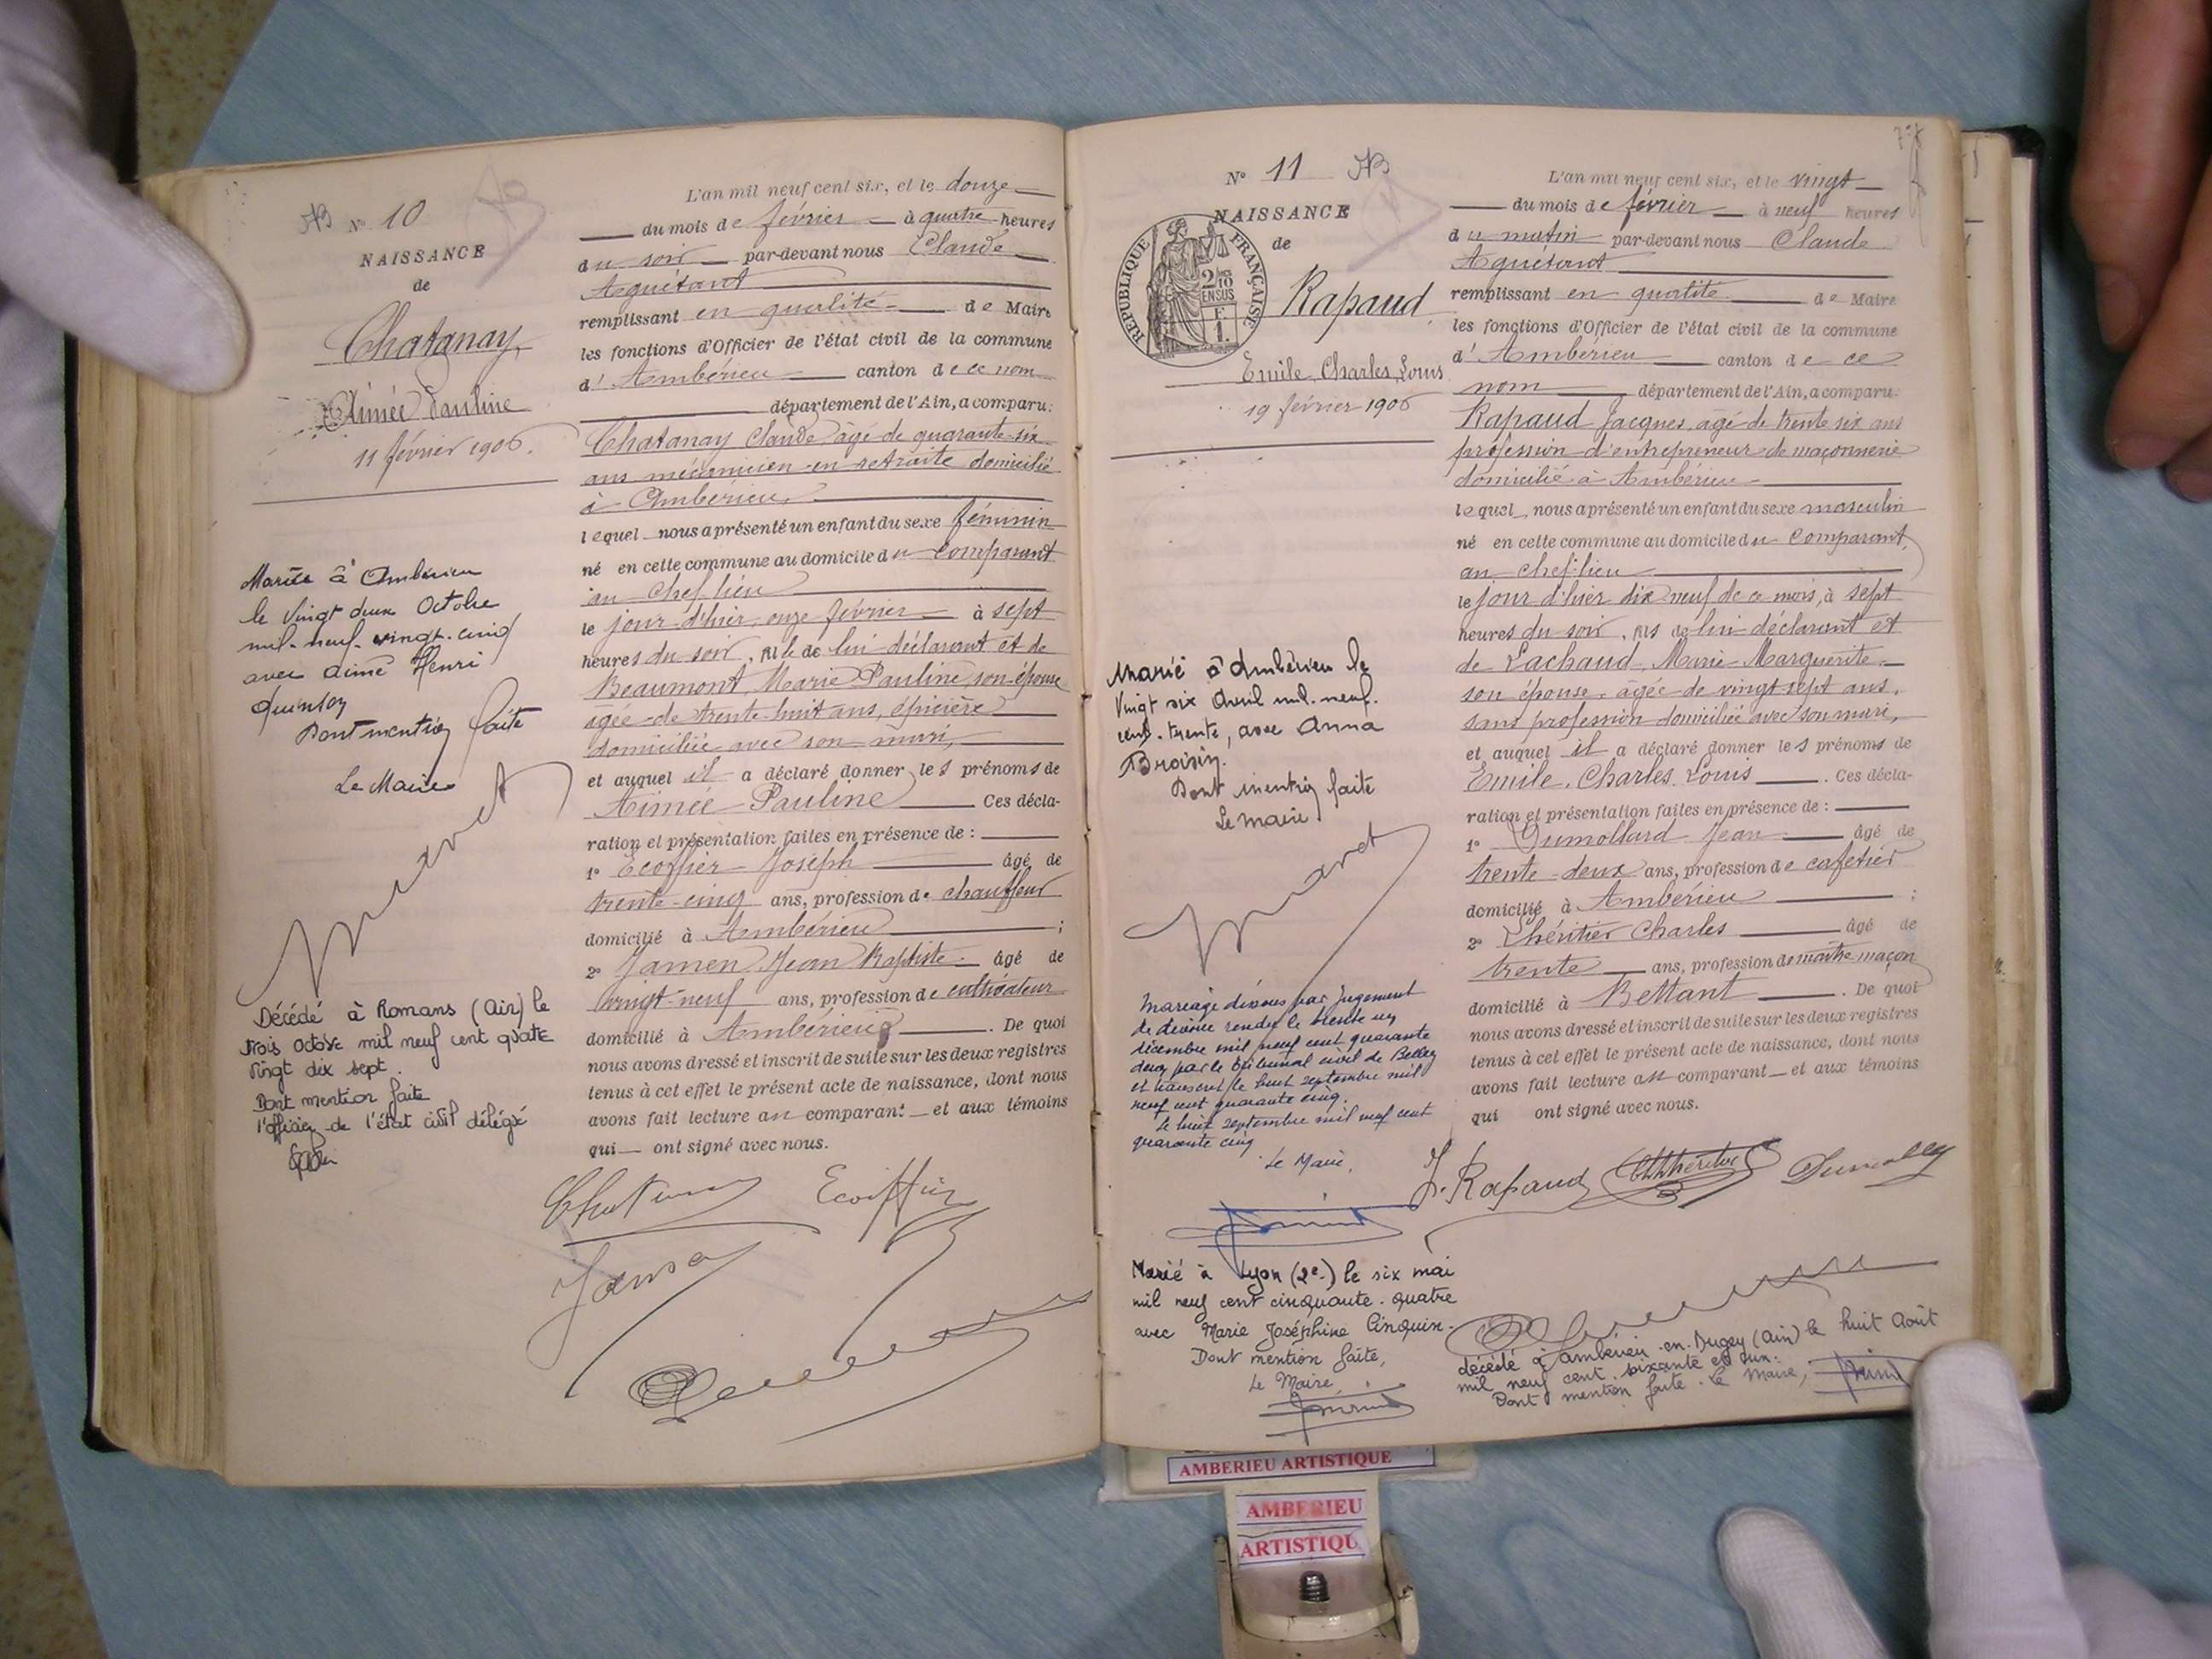 N° 10
NAISSANCE
de
Chatanay
Aimée Pauline
11 février 1906.
Mariée à Ambérieu
le Vingt deux Octobre
mil-neuf-vingt-cinq
avec Aimé Henri
Dont mention faite
Le Maire
Décédé à Romans (Ain) le
trois octobre mil neuf cent quatre
vingt dix sept.
Dont mention faite
l'officier de l'état civil délégué
L'an mil neuf cent six, et le douze
du mois de février à quatre heures
du soir par-devant nous Claude
Aguétant
remplissant en qualité de Maire
les fonctions d'Officier de l'état civil de la commune
d'Ambérieu canton de ce nom
département de l'Ain, a comparu:
Chatanay Claude âgé de quarante-six
ans mécanicien en retraite domicilié
à Ambérieu,
lequel nous a présenté un enfant du sexe féminin
né en cette commune au domicile du comparant
au chef lieu
le jour d'hier onze février à sept
heures du soir, fille de lui déclarant et de
Beaumont, Marie Pauline, son épouse
âgée de trente-huit ans, épicière
domiciliée avec son mari,
et auquel il a déclaré donner les prénoms de
Aimée Pauline Ces décla-
ration et présentation faites en présence de :
1° Ecoffier Joseph âgé de
trente-cinq ans, profession de chauffeur
domicilié à Ambérieu ;
2° Jamen Jean Baptiste âgé de
vingt-neuf ans, profession de cultivateur
domicilié à Ambérieu . De quoi
nous avons dressé et inscrit de suite sur les deux registres
tenus à cet effet le présent acte de naissance, dont nous
avons fait lecture au comparant et aux témoins
qui ont signé avec nous.
N° 11
NAISSANCE
de
REPUBLIQUE FRANÇAISE
2/10
EN SUS
1 F.
Rapaud
Emile, Charles, Louis
19 février 1906
Marié à Ambérieu le
Vingt six Avril mil-neuf-
cent-trente, avec Anna
Broisin.
Dont mention faite
Le maire
Mariage dissous par jugement
de divorce rendu le trente un
décembre mil neuf cent quarante
deux par le tribunal civil de Belley
et transcrit le huit septembre mil
neuf cent quarante cinq.
Le huit septembre mil neuf cent
quarante cinq
Le Maire,
Marié à Lyon (2e) le six mai
mil neuf cent cinquante-quatre
avec Marie Joséphine Cinquin.
Dont mention faite,
Le Maire,
L'an mil neuf cent six, et le vingt
du mois de février à neuf heures
du matin par-devant nous Claude
Aguétant
remplissant en qualité de Maire
les fonctions d'Officier de l'état civil de la commune
d'Ambérieu canton de ce
nom département de l'Ain, a comparu:
Rapaud Jacques, âgé de trente six ans
profession d'entrepreneur de maçonnerie
domicilié à Ambérieu
lequel nous a présenté un enfant du sexe masculin
né en cette commune au domicile du comparant,
au chef-lieu
le jour d'hier dix neuf de ce mois, à sept
heures du soir, fils de lui déclarant et
de Lachaud Marie Marguerite,
son épouse, âgée de vingt sept ans,
sans profession domiciliée avec son mari,
et auquel il a déclaré donner les prénoms de
Emile, Charles, Louis . Ces décla-
ration et présentation faites en présence de :
1° Dumollard Jean âgé de
trente-deux ans, profession de cafetier
domicilié à Ambérieu ;
2° Lhéritier Charles âgé de
trente ans, profession de maître maçon
domicilié à Bettant . De quoi
nous avons dressé et inscrit de suite sur les deux registres
tenus à cet effet le présent acte de naissance, dont nous
avons fait lecture au comparant et aux témoins
qui ont signé avec nous.
J. Rapaud
décédé à Ambérieu-en-Bugey (Ain) le huit Août
mil neuf cent soixante et un.
Dont mention faite. Le Maire,
AMBERIEU ARTISTIQUE
AMBERIEU
ARTISTIQU